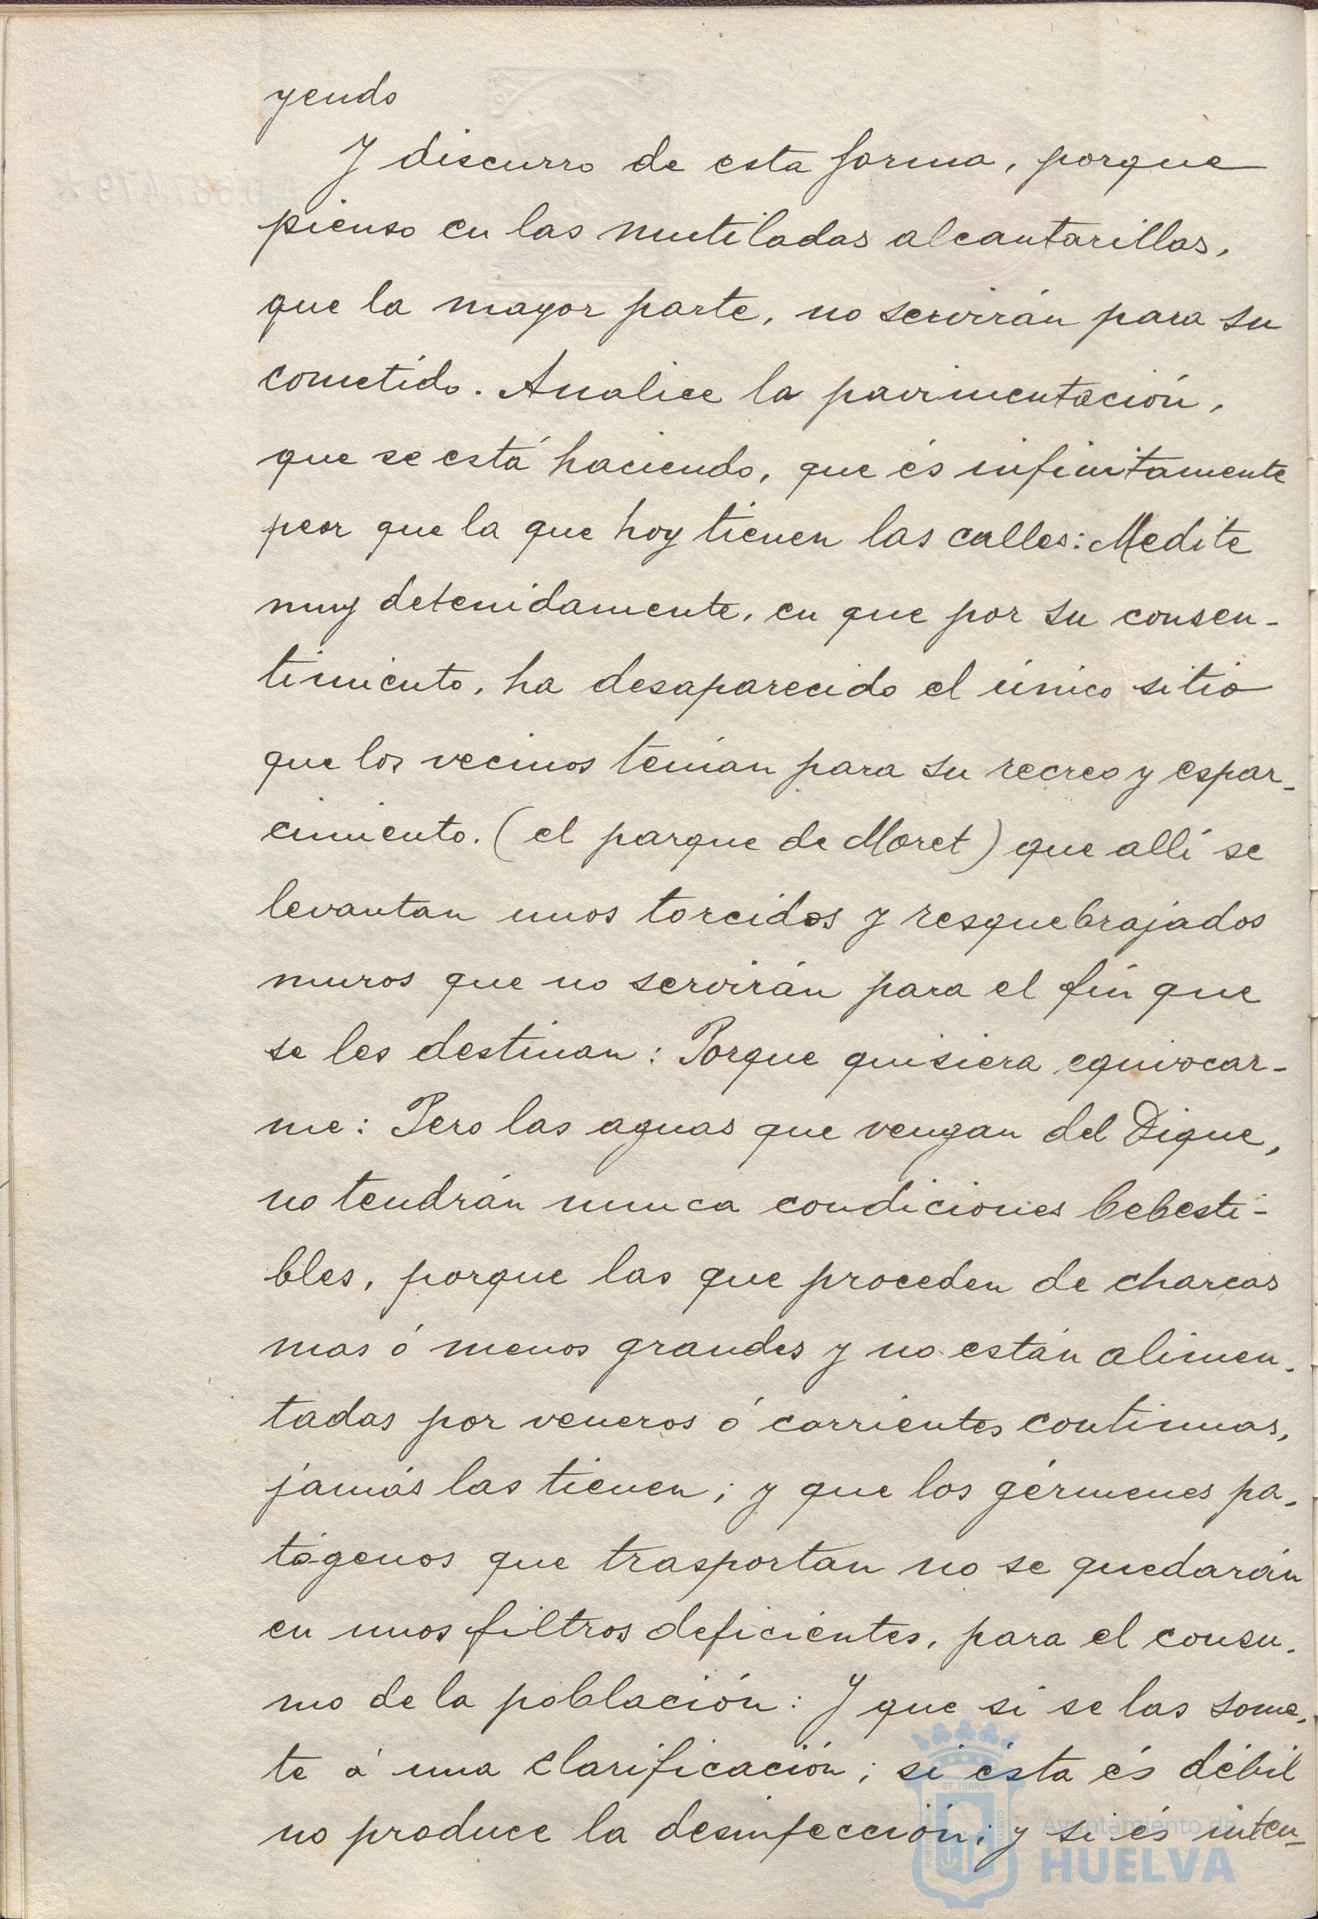 yendo
Y discurro de esta forma, porque
pienso en las mutiladas alcantarillas,
que la mayor parte, no servirán para su
cometido. Analice la pavimentación,
que se está haciendo, que és infinitamente
peor que la que hoy tienen las calles: Medite
muy detenidamente, en que por su consen-
timiento, ha desaparecido el único sitio
que los vecinos tenian para su recreo y espar-
cimiento. (el parque de Moret) que allí se
levantan unos torcidos y resquebrajados
muros que no servirán para el fín que
se les destinan: Porque quisiera equivocar-
me: Pero las aguas que vengan del Dique,
no tendrán nunca condiciones bebesti-
bles, porque las que proceden de charcas
mas ó menos grandes y no están alimen-
tadas por veneros ó corrientes continuas,
jamás las tienen; y que los gérmenes pa-
tógenos que trasportan no se quedarán
en unos filtros deficientes, para el consu-
mo de la población: Y que si se las some-
te á una clarificación; si ésta és débil
no produce la desinfección; y si és inten-
Ayuntamiento de
HUELVA